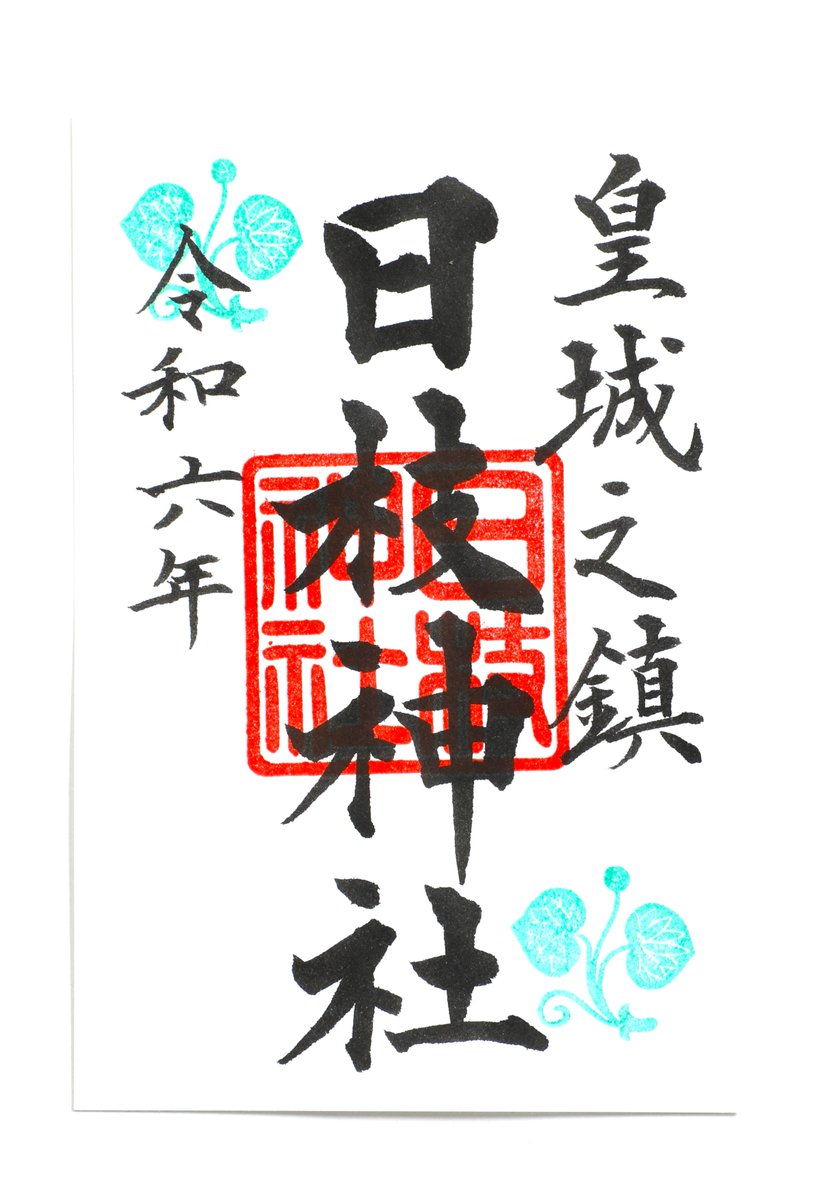 皇城之鎮
日枝神社
日枝神社
令和六年